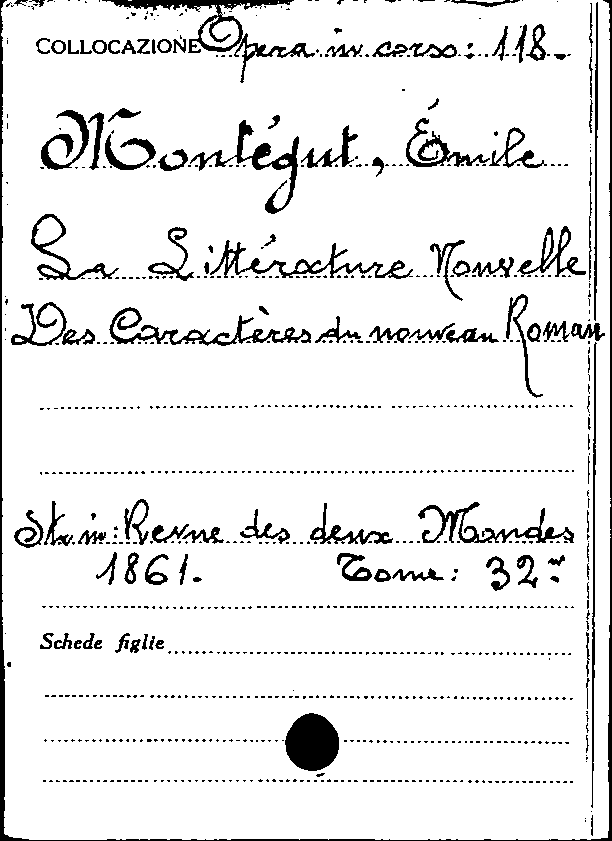 COLLOCAZIONE Opera in corso: 118.
Montégut, Émile
La Littérature Nouvelle
Des Caractères du nouveau Roman
Sta in: Revue des deux Mondes
1861. Tome: 32me
Schede figlie